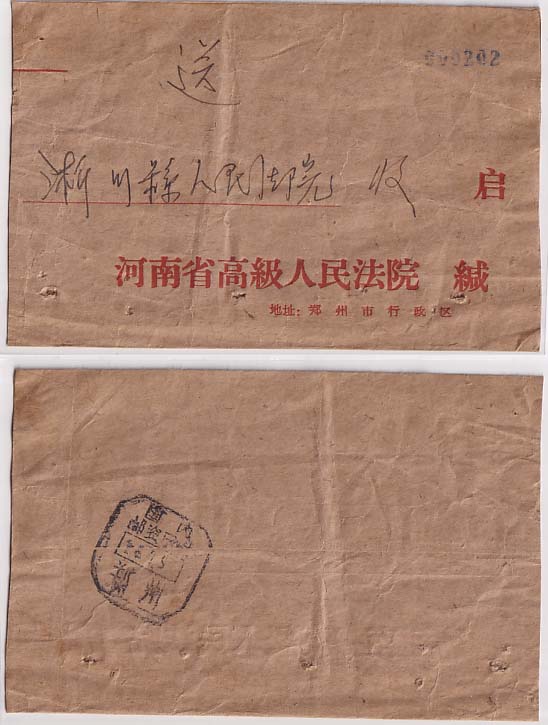 送
000202
淅川縣人民法院 收
启
河南省高級人民法院 缄
地址：郑州市行政区
国内
邮资已付
郑州